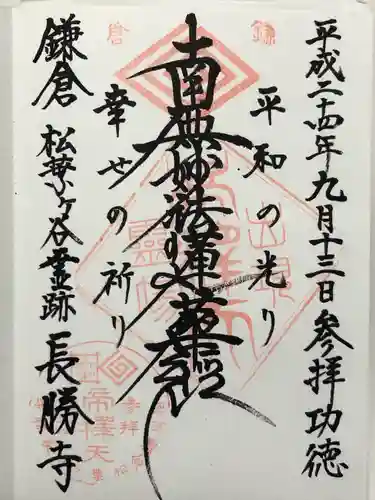 平成二十四年九月十三日 参拝功徳
平和の光り
南無妙法蓮華経
幸せの祈り
鎌倉 松葉ヶ谷霊跡 長勝寺
鎌
倉
帝釋天
参拝